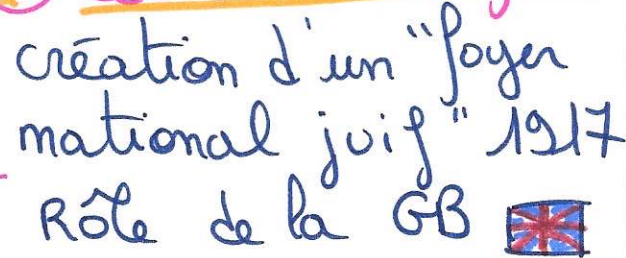 création d'un "foyer
national juif" 1917
Rôle de la GB